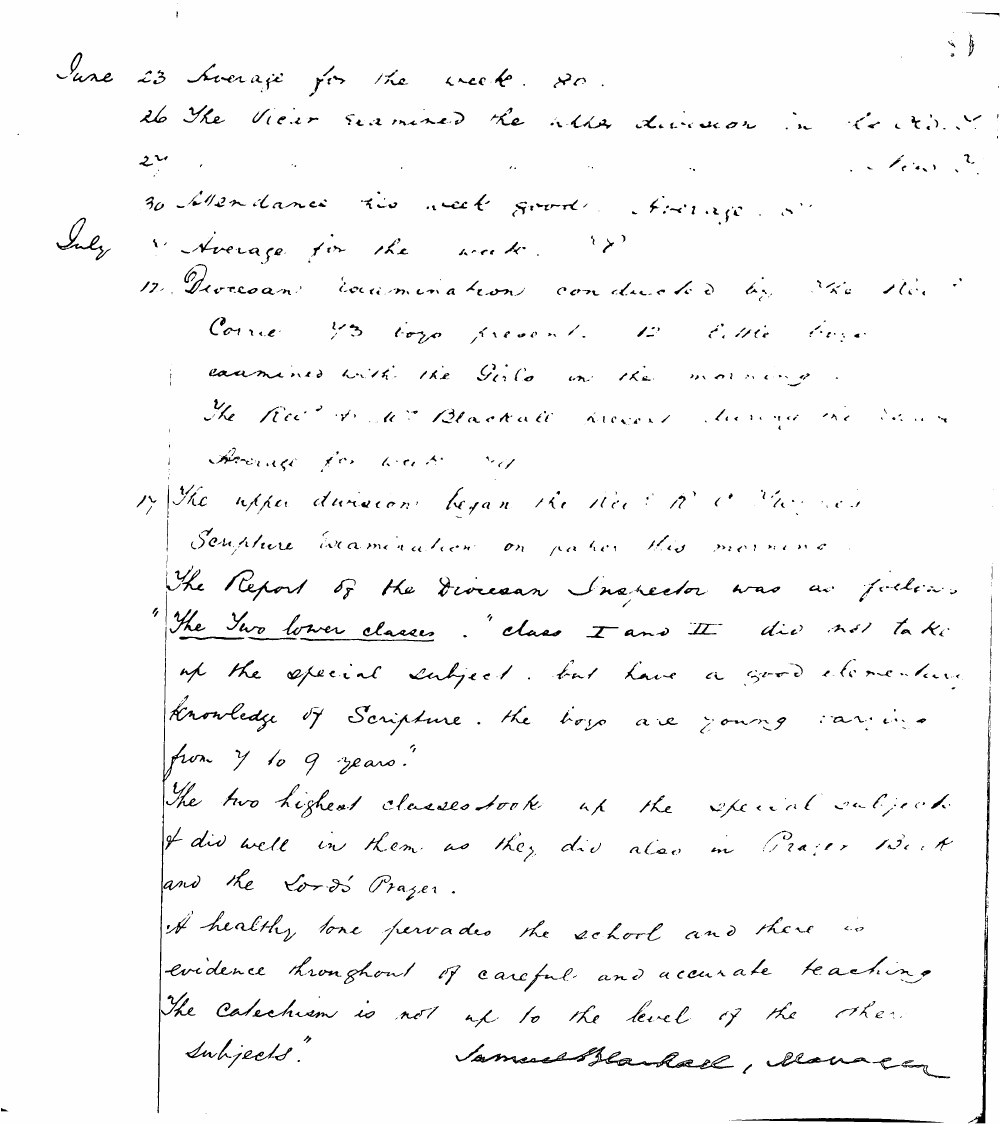 June 23 Average for the week. 80.
26 The Vicar examined the upper division in the
27 " " " " New T.
30 Attendance this week good. Average
July Average for the week.
Diocesan Examination conducted by the Rev
Corrie 73 boys present. 12 little boys
examined with the Girls in the morning.
The Revd & Mrs Blackall present during the
Average for week
17 The upper division began the Revd R
Scripture Examination on paper this morning.
The Report of the Diocesan Inspector was as follows
"The Two lower classes. "class I and II did not take
up the special subject. but have a good elementary
knowledge of Scripture. the boys are young varying
from 7 to 9 years."
The two highest classes took up the special subject
& did well in them as they did also in Prayer Book
and the Lord's Prayer.
A healthy tone pervades the school and there is
evidence throughout of careful and accurate teaching
The Catechism is not up to the level of the other
subjects." Samuel Blackall, Manager